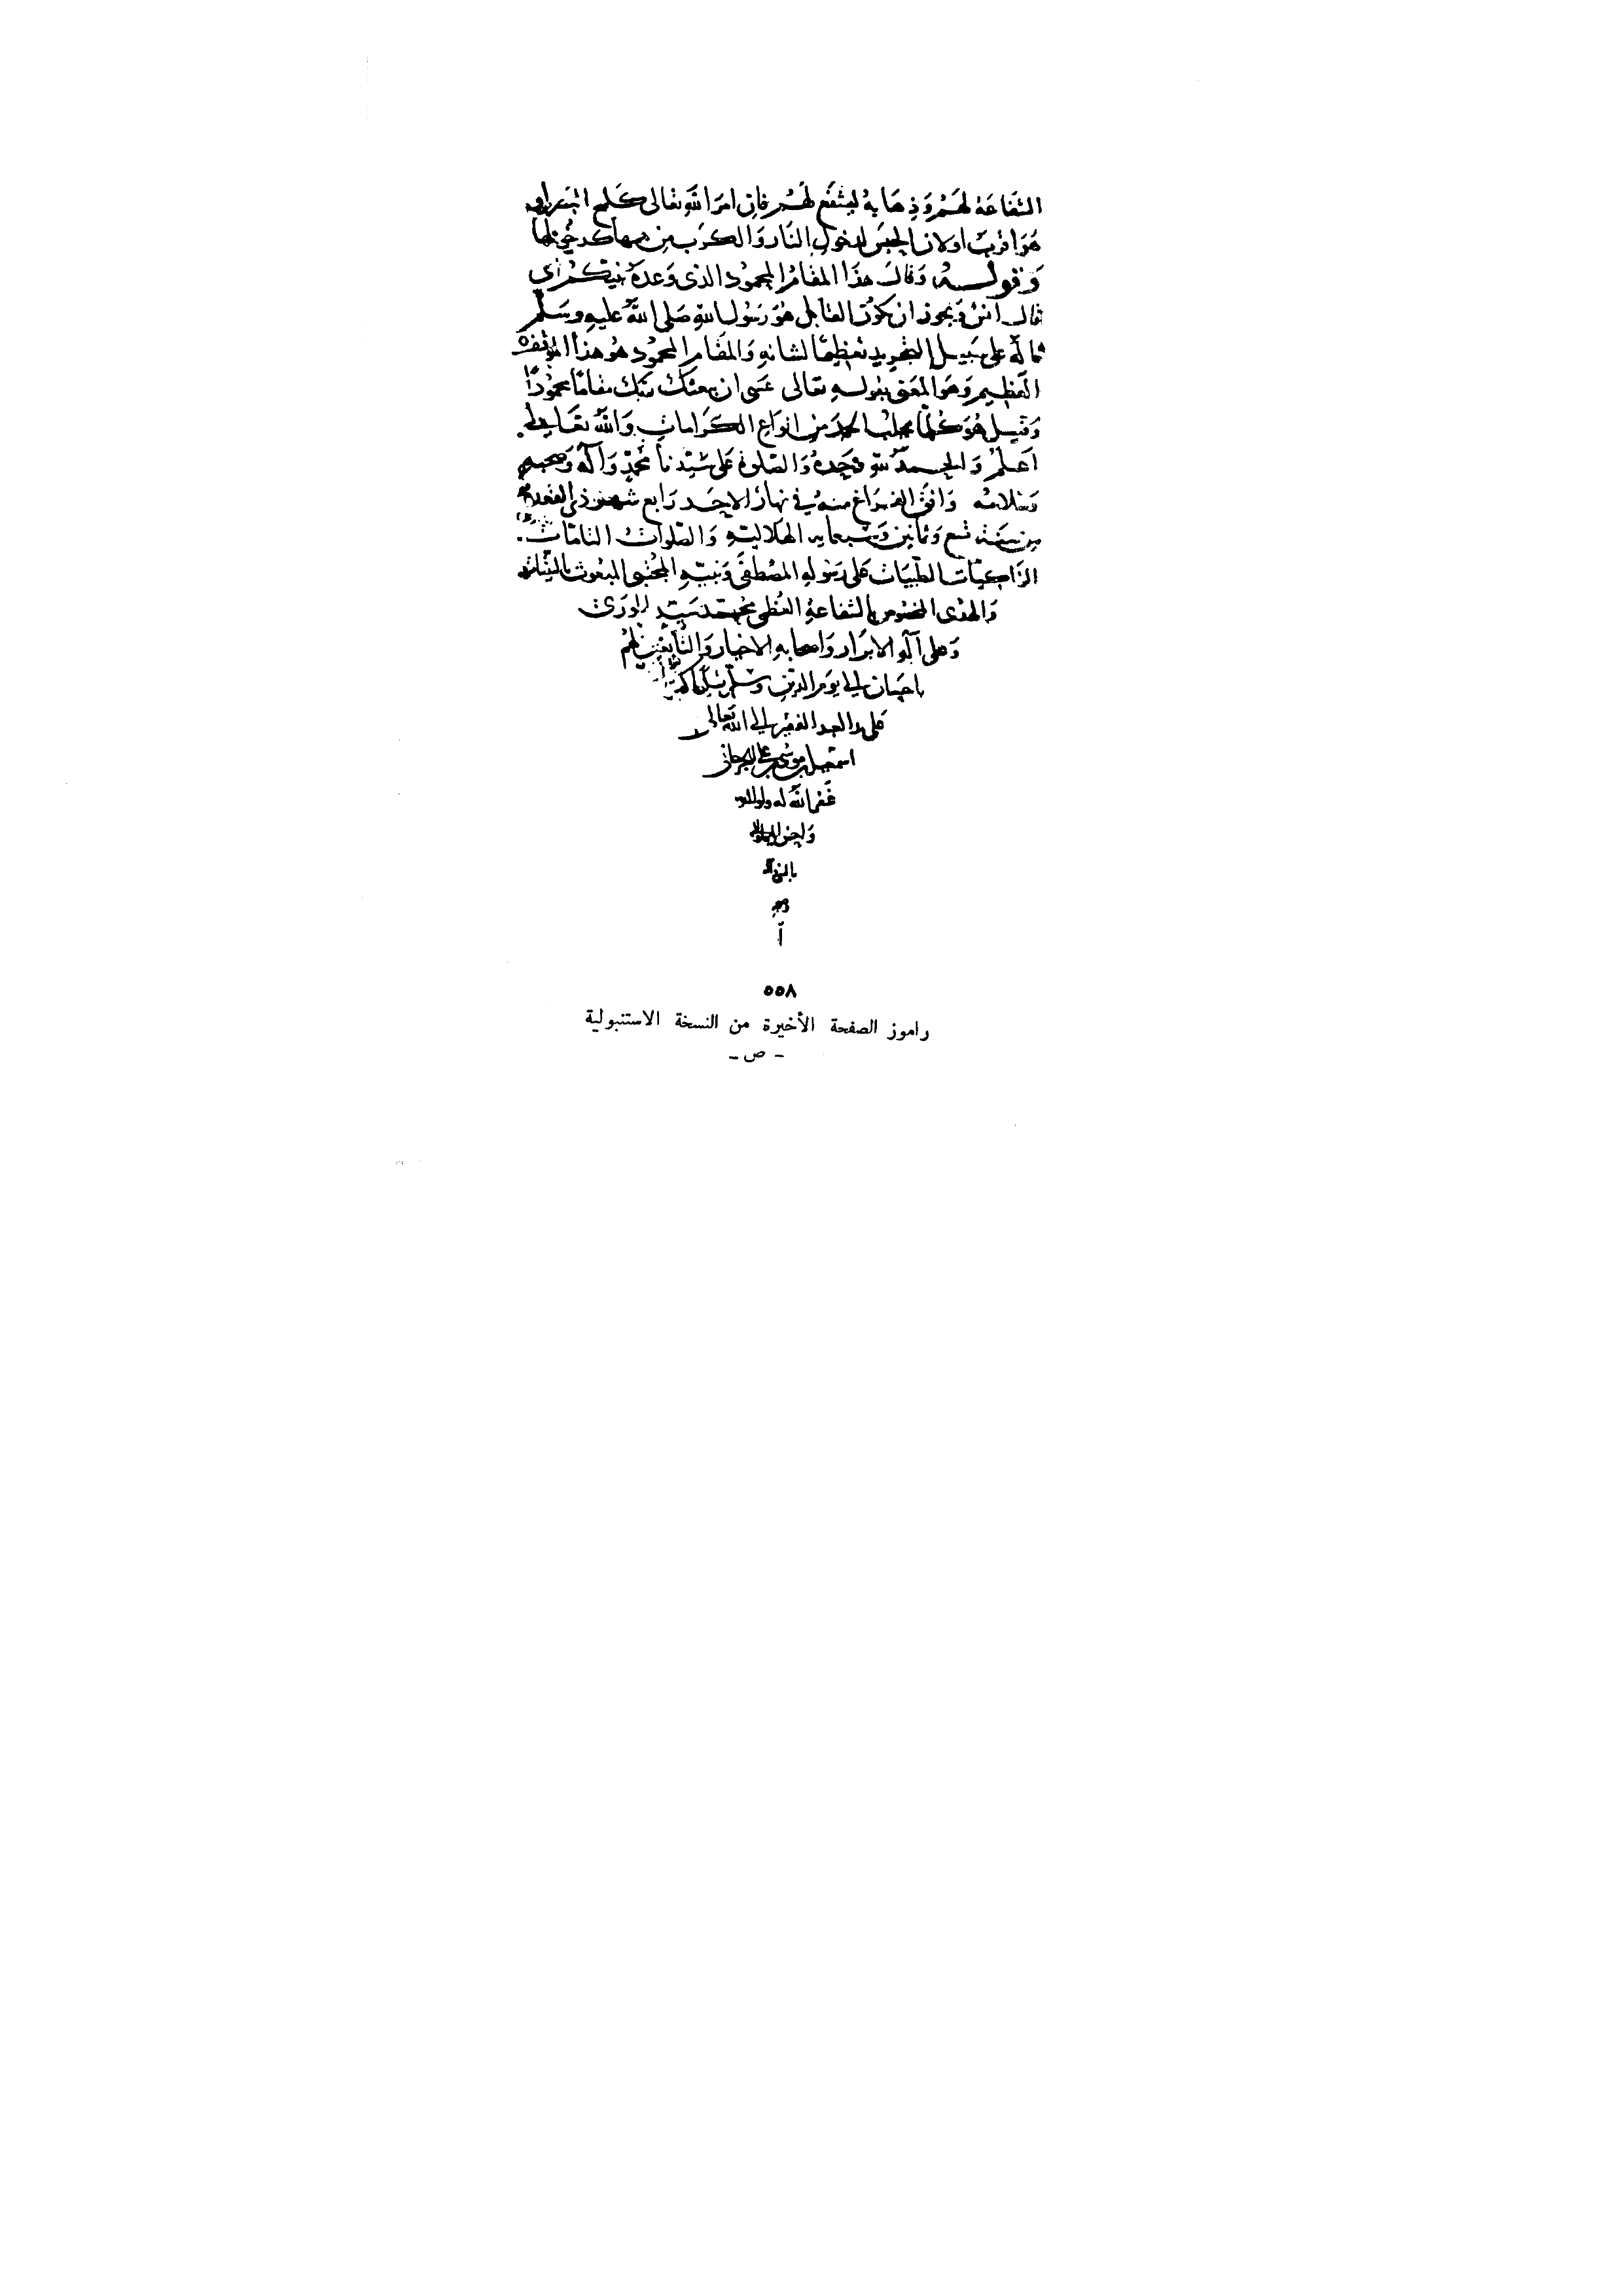 الشفاعة لهم وذهابه ليشفع لهم فان امر الله تعالى كلمح البصر او
هو اقرب اولان الحبس لدخول النار والكرب من حبها كدخولها
وقوله وقال هذا المقام المحمود الذى وعده نبيكم اي
قال انس ويجوز ان يكون القايل هو رسول الله صلى الله عليه وسلم
قاله على سبيل التجريد تعظيما لشانه والمقام المحمود هو هذا الموقف
العظيم وهو المعنى بقوله تعالى عسى ان يبعثك ربك مقاما محمودا
وقيل هو كلما يجلب الحمد من انواع الكرامات والله تعالى
اعلم والحمد لله وحده والصلوة على سيدنا محمد وآله وصحبه
وسلامه وافق الفراغ منه في نهار الاحد رابع شهر ذي القعدة
من سنة تسع وثمانين وسبعمايه الهلاليه والصلوات التامات
الزاكيات الطيبات على رسوله المصطفى ونبيه المجتبى المبعوث
والهدى المخصوص بالشفاعة العظمى محمد سيد الورى
وعلى آله الابرار واصحابه الاخيار والتابعين لهم
باحسان الى يوم الدين وسلم تسليما كثيرا
على يد العبد الفقير الى الله تعالى
اسمعيل بن موسى بن
غفر الله له ولوالديه
آ
٥٥٨
راموز الصفحة الأخيرة من النسخة الاستنبولية
- ص -